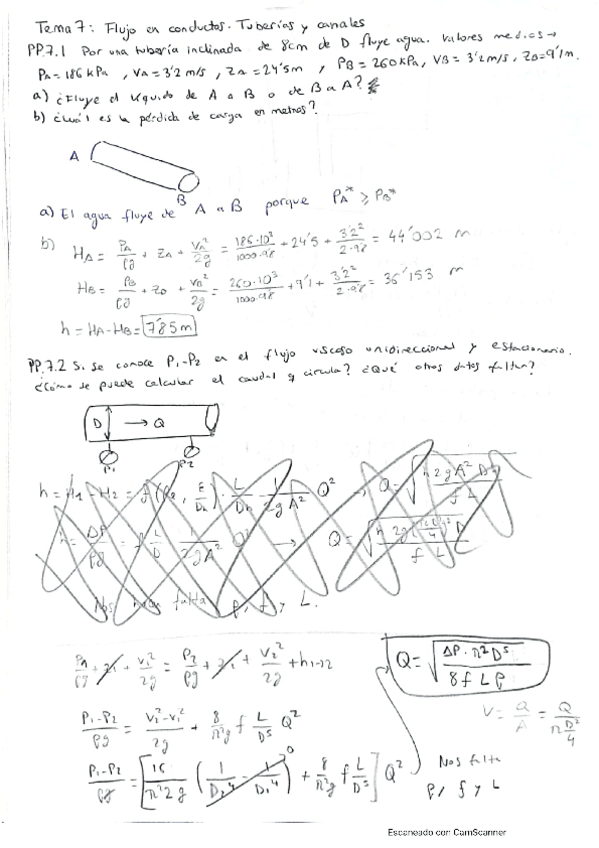 Tema 7: Flujo en conductos. Tuberías y canales
PP.7.1 Por una tubería inclinada de 8cm de D fluye agua. Valores medios →
PA = 186 kPa, VA = 3'2 m/s, ZA = 24'5m, PB = 260 kPa, VB = 3'2 m/s, ZB = 9'1m.
a) ¿Fluye el líquido de A a B o de B a A?
b) ¿Cuál es la pérdida de carga en metros?
A
B
a) El agua fluye de A a B porque PA* > PB*
b) HA = PA/ρg + ZA + VA²/2g = 186·10³/1000·9'8 + 24'5 + 3'2²/2·9'8 = 44'002 m
HB = PB/ρg + ZB + VB²/2g = 260·10³/1000·9'8 + 9'1 + 3'2²/2·9'8 = 36'153 m
h = HA - HB = 7'85m
PP.7.2 Si se conoce P1-P2 en el flujo viscoso unidireccional y estacionario.
¿Cómo se puede calcular el caudal q circula? ¿Qué otros datos faltan?
D → Q
P1 P2
h = H1 - H2 = f · L/Dh · 1/2gA² Q² → Q = √(h 2gA² Dh / f L)
h = ΔP/ρg = f L/D 1/2gA² Q² → Q =
Nos falta ρ, f y L.
P1/ρg + z1 + V1²/2g = P2/ρg + z2 + V2²/2g + h1-2
Q = √(ΔP·π²D⁵ / 8 f L ρ)
P1-P2/ρg = V2²-V1²/2g + 8/π²g f L/D⁵ Q²
V = Q/A = Q/(π D²/4)
P1-P2/ρg = [16/π²2g (1/D2⁴ - 1/D1⁴)⁰ + 8/π²g f L/D⁵] Q²
Nos falta
ρ, f y L
Escaneado con CamScanner